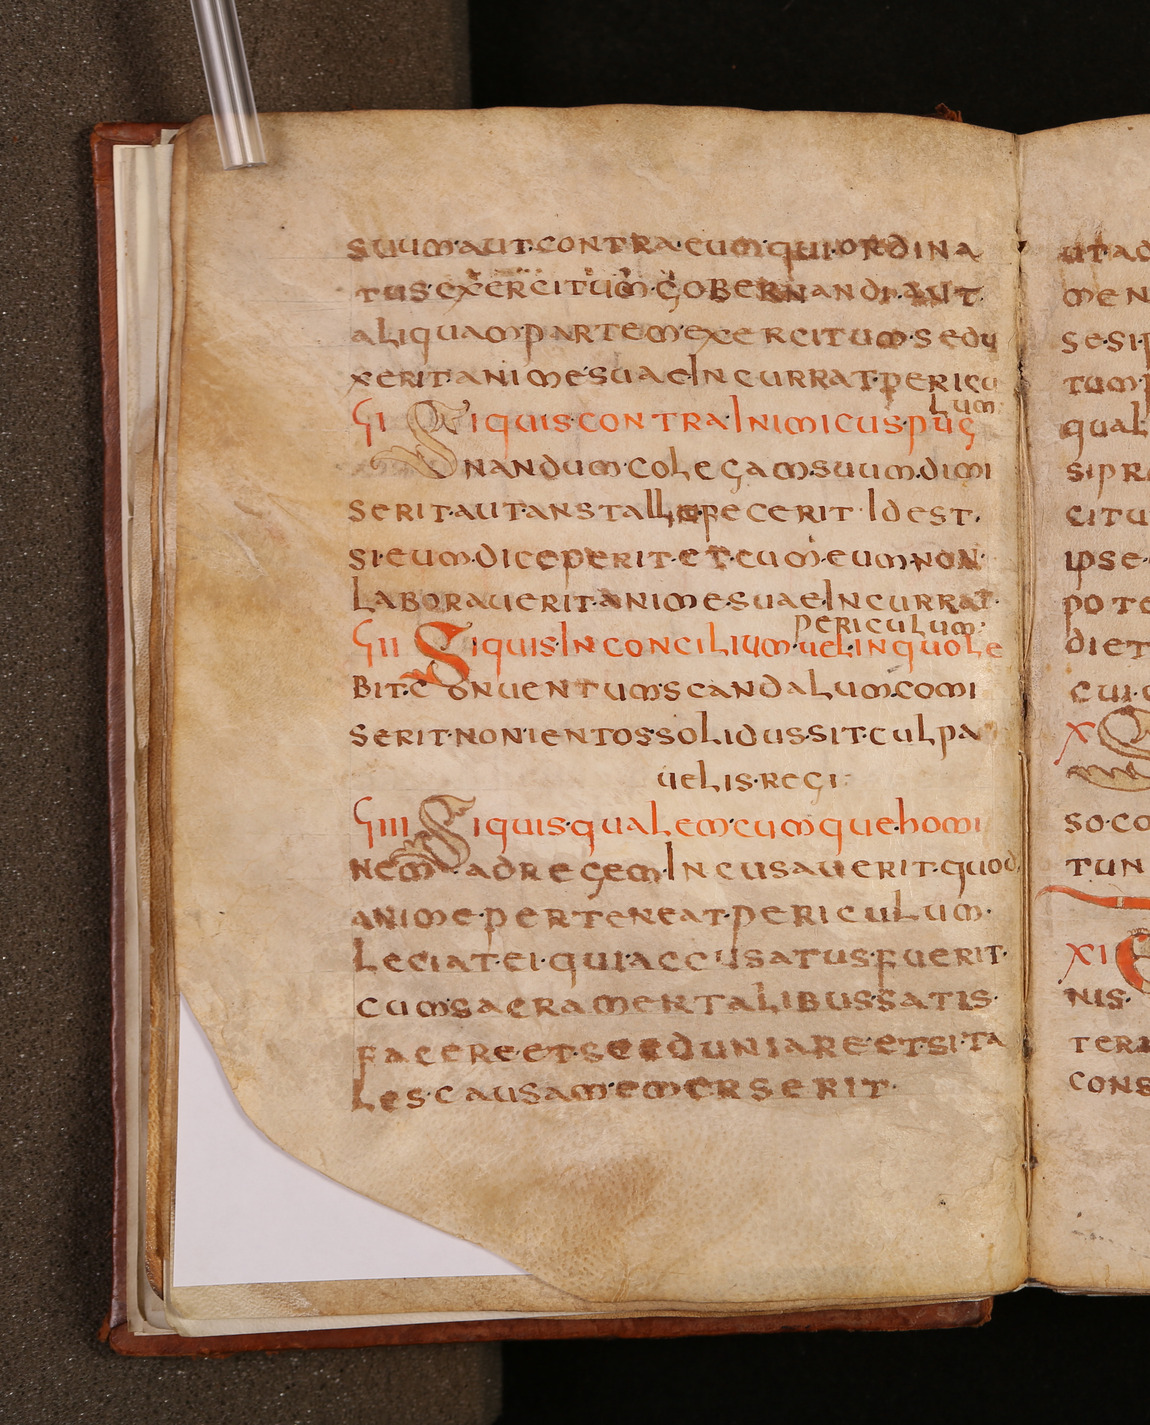 suum·aut·contra·eum·qui·ordina
tus·exercitum·gobernandi·aut·
aliquam·partem·exercitum·sedu
xerit·anime·suae·Incurrat·pericu
lum·
ҁI Siquis·contra·Inimicus·pug
nandum·colegam·suum·dimi
serit·aut·anstalin·fecerit·Idest·
si·eum·diceperit·et·cum·eum·non·
laboraverit·anime·suae·Incurrat·
periculum·
ҁII Siquis·In concilium·uel·in quole
bit·conuentum·scandalum·comi
serit·nonientos·solidus·sit·culpa
uelis·regi·
ҁIII Siquis·qualemcumque·homi
nem·ad regem·Incusauerit·quod
anime·perteneat·periculum·
leciat·ei·qui·accusatus·fuerit·
cum·sacramentalibus·satis·
facere·et·se eduniare·et si·ta
les·causam·emerserit·
ut ad
men
se·si·p
tum·p
qual
si pr
citu
ipse·
pote
diet
cui·c
x
so·co
tun
xi
nis·
teri
cons